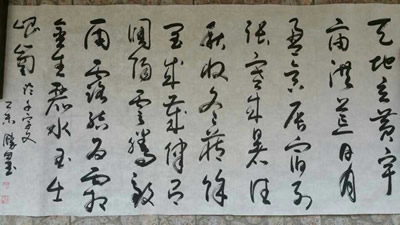 天地玄黃宇
宙洪荒日月
盈昃辰宿列
張寒來暑往
秋收冬藏餘
閏成歲律呂
調陽雲騰致
雨露結為霜
金生麗水玉出
崐崗
千字文
乙未